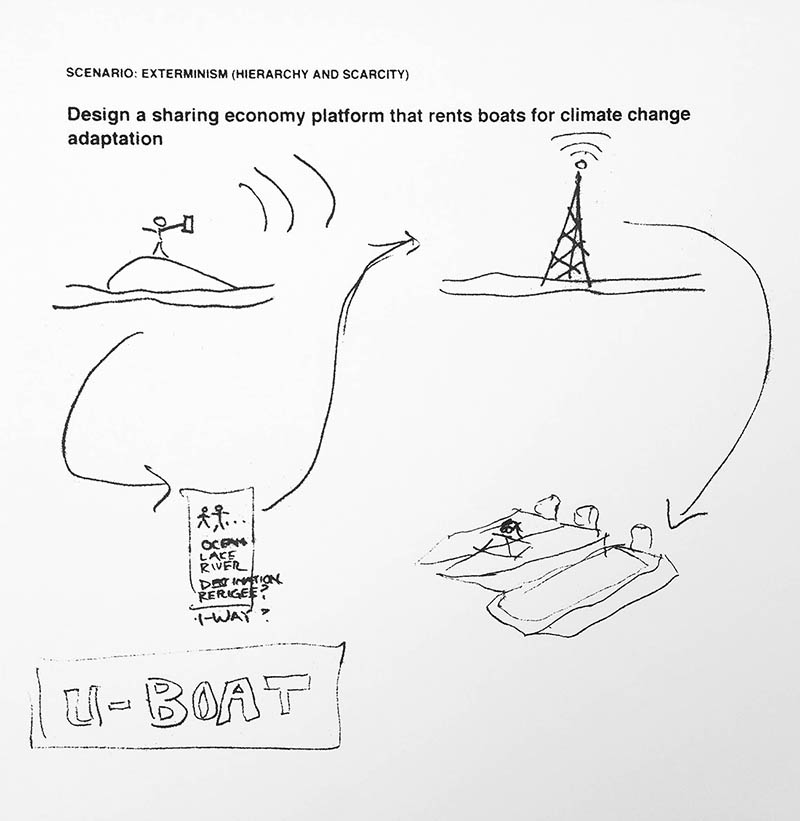 SCENARIO: EXTERMINISM (HIERARCHY AND SCARCITY)
Design a sharing economy platform that rents boats for climate change
adaptation
OCEAN
LAKE
RIVER
DESTINATION
REFIGEE?
1-WAY?
U-BOAT